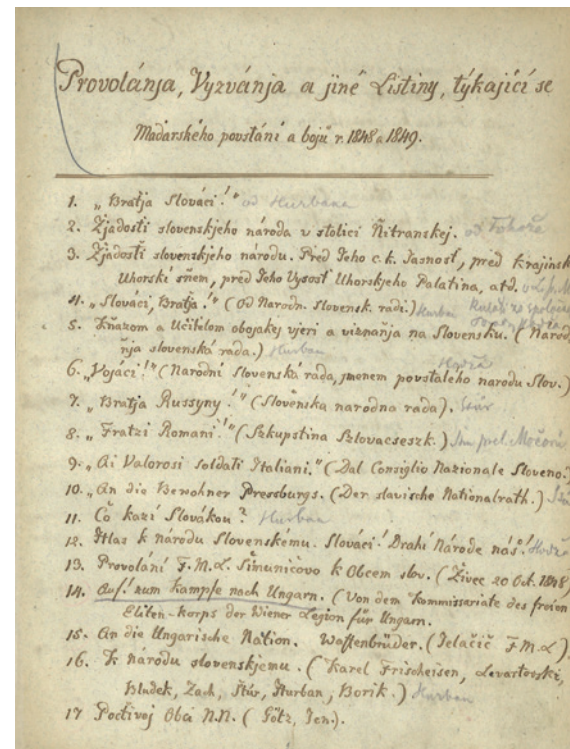 Provolánja, Vyzvánja a jiné Listiny, týkající se
Maďarského povstání a bojů r. 1848 a 1849.
1. „Bratja Slováci!" od Hurbana
2. Žjadosti slovenskjeho národa v stolici Ňitranskej. od
3. Žjadosti slovenskjeho národu. Pred Jeho c.k. Jasnosť, pred Krajinsk
Uhorskí sňem, pred Jeho Vysosť Uhorskjeho Palatina, atď.
4. „Slovaci, Bratja!" (Od Narodn. Slovensk. radi.) Hurban
5. Kňazom a Učitelom obojakej vjeri a viznaňja na Slovensku. (Narod
ňja slovenská rada.) Hurban
6. „Vojaci!" (Narodní Slovenská rada, jmenem povstalého narodu Slov.) Hodža
7. „Bratja Russyny!" (Slovenska narodna rada). Štúr
8. „Fratzi Romani!" (Szkupstina Szlovacseszk.)
9. „Ai Valorosi Soldati Italiani." (Dal Consiglio Nazionale Sloveno.)
10. „An die Bewohner Pressburgs. (Der slavische Nationalrath.)
11. Čo kazí Slovákou? Hurban
12. Hlas k národu Slovenskemu. Slováci! Drahí Národe náš! Hodža
13. Provolání F.M.L. Šimunićovo k Obcem slov. (Živec 20 Oct. 1848)
14. Auf! zum Kampfe nach Ungarn. (Von dem Kommissariate des freien
Eliten-korps der Wiener Legion für Ungarn.
15. An die Ungarische Nation. Waffenbrüder. (Jelačič F.M.L)
16. K národu slovenskjemu. (Karel Frischeisen,
Bludek, Zach, Štúr, Hurban, Borik.) Hurban
17 Poctivoj Obci N.N. (Götz, Jen.).